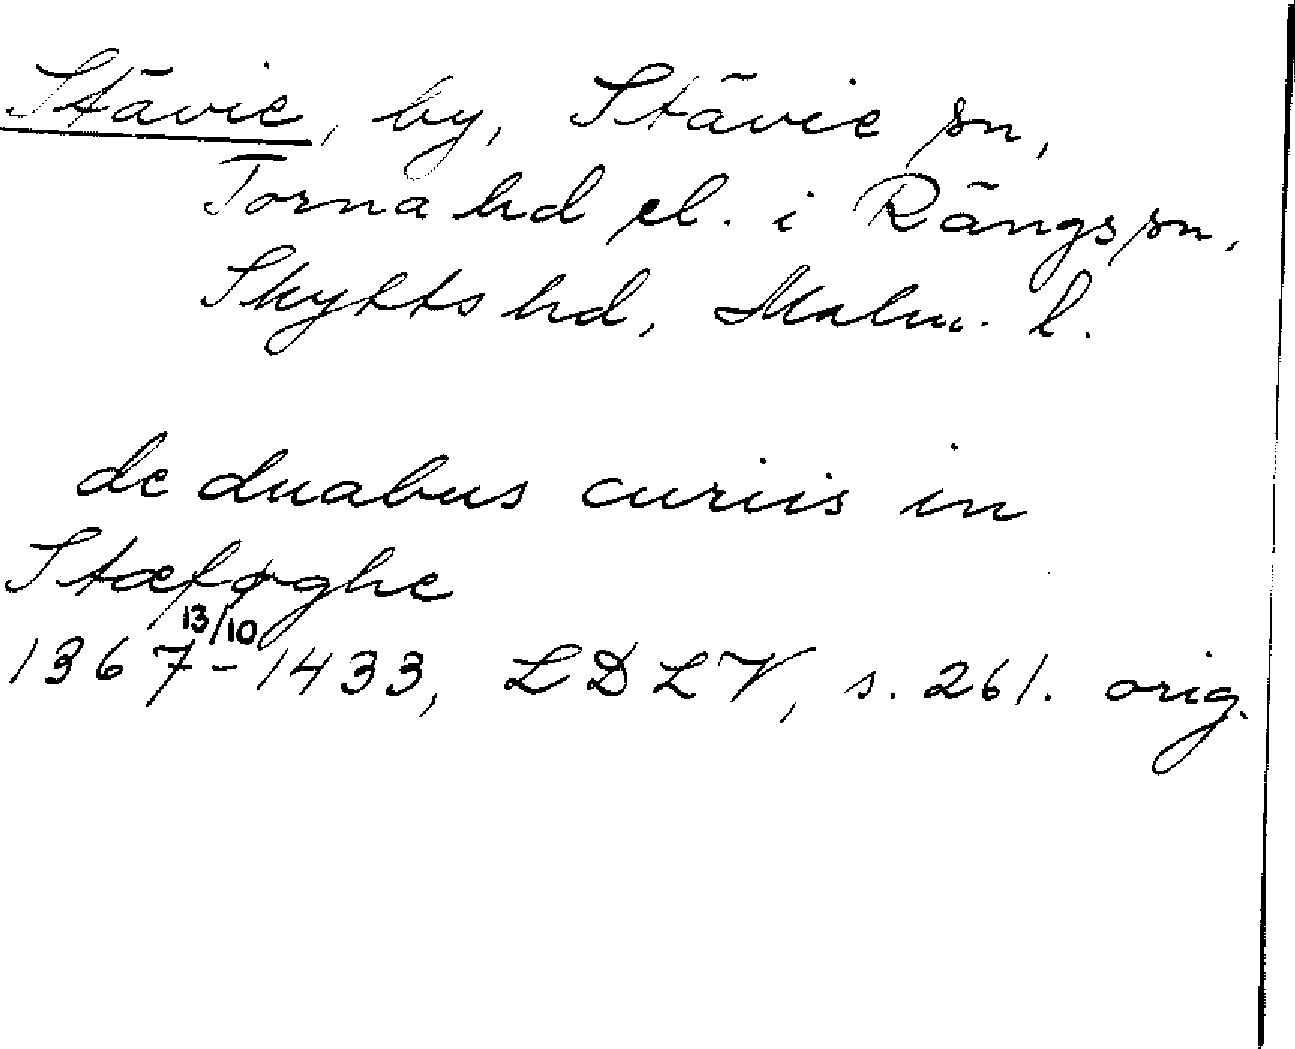 Stävie, by, Stävie sn,
Torna hd el. i Rängs sn,
Skytts hd, Malm. l.
de duabus curiis in
Stæføghe
13/10
1367-1433, LDLV, s. 261. orig.